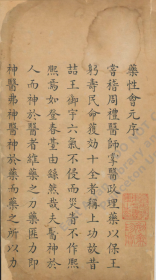 藥性會元序
嘗稽周禮醫師掌醫政理藥以保王
躬壽民命獲効十全者稱上功故昔
喆王御宇六氣不侵而災青不作熙
熙焉如登春臺由繇然哉夫醫神於
人而神於醫者維藥之刀藥匪力即
神醫弗神醫神於藥而藥之所以力